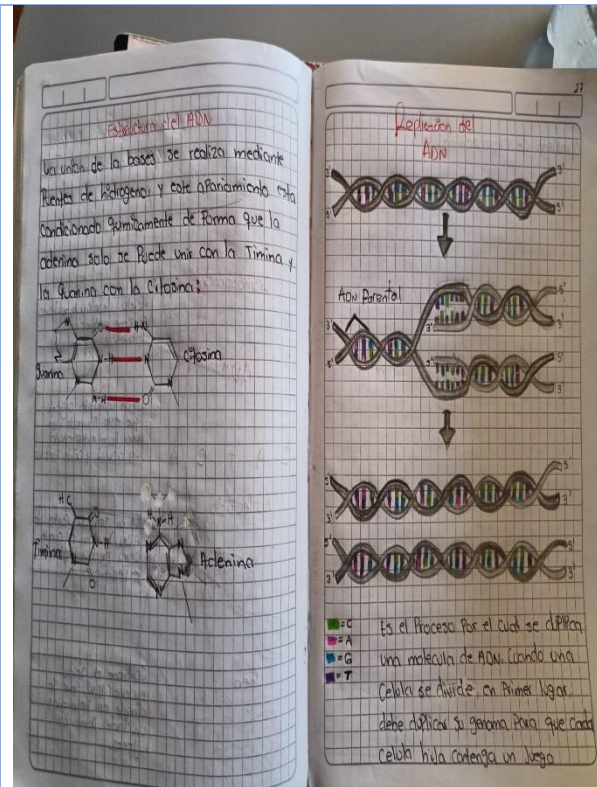 Estructura del ADN
La unión de la bases se realiza mediante
Puentes de hidrogeno y este apariamiento esta
condicionado quimicamente de Forma que la
adenina solo se Puede unir con la Timina y
la guanina con la Citosina:
O H-N
Guanina N-H N Citosina
N-H O
H₃C O
Timina N-H
O
H-N-H
Adenina
27
Replicacion del
ADN
3' 3'
5' 5'
ADN Parental
3' 3' 5'
5' 3'
5' 5'
3' 3'
5' 5'
3' 3'
=C
=A
=G
=T
Es el Proceso Por el cual se duplica
una molecula de ADN. Cuando una
Celula se divide, en Primer lugar,
debe duplicar su genoma Para que cada
Celula hija contenga un Juego